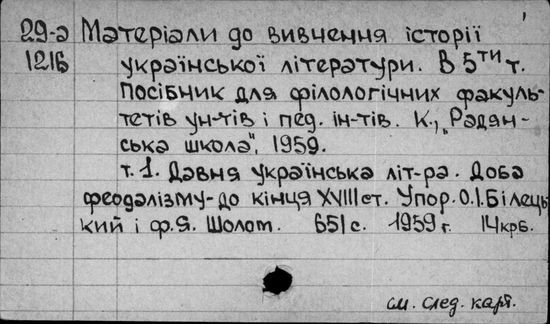 29-а Матеріали до вивчення історії
1216 української літератури. В 5ти т.
Посібник для філологічних факуль-
тетів ун-тів і пед. ін-тів. К., "Радян-
ська школа", 1959.
т. 1. Давня українська літ-ра. Доба
феодалізму-до кінця XVIII ст. Упор. О.І. Білець-
кий і Ф.Я. Шолом. 651 с. 1959 г. 14крб.
см. след. карт.